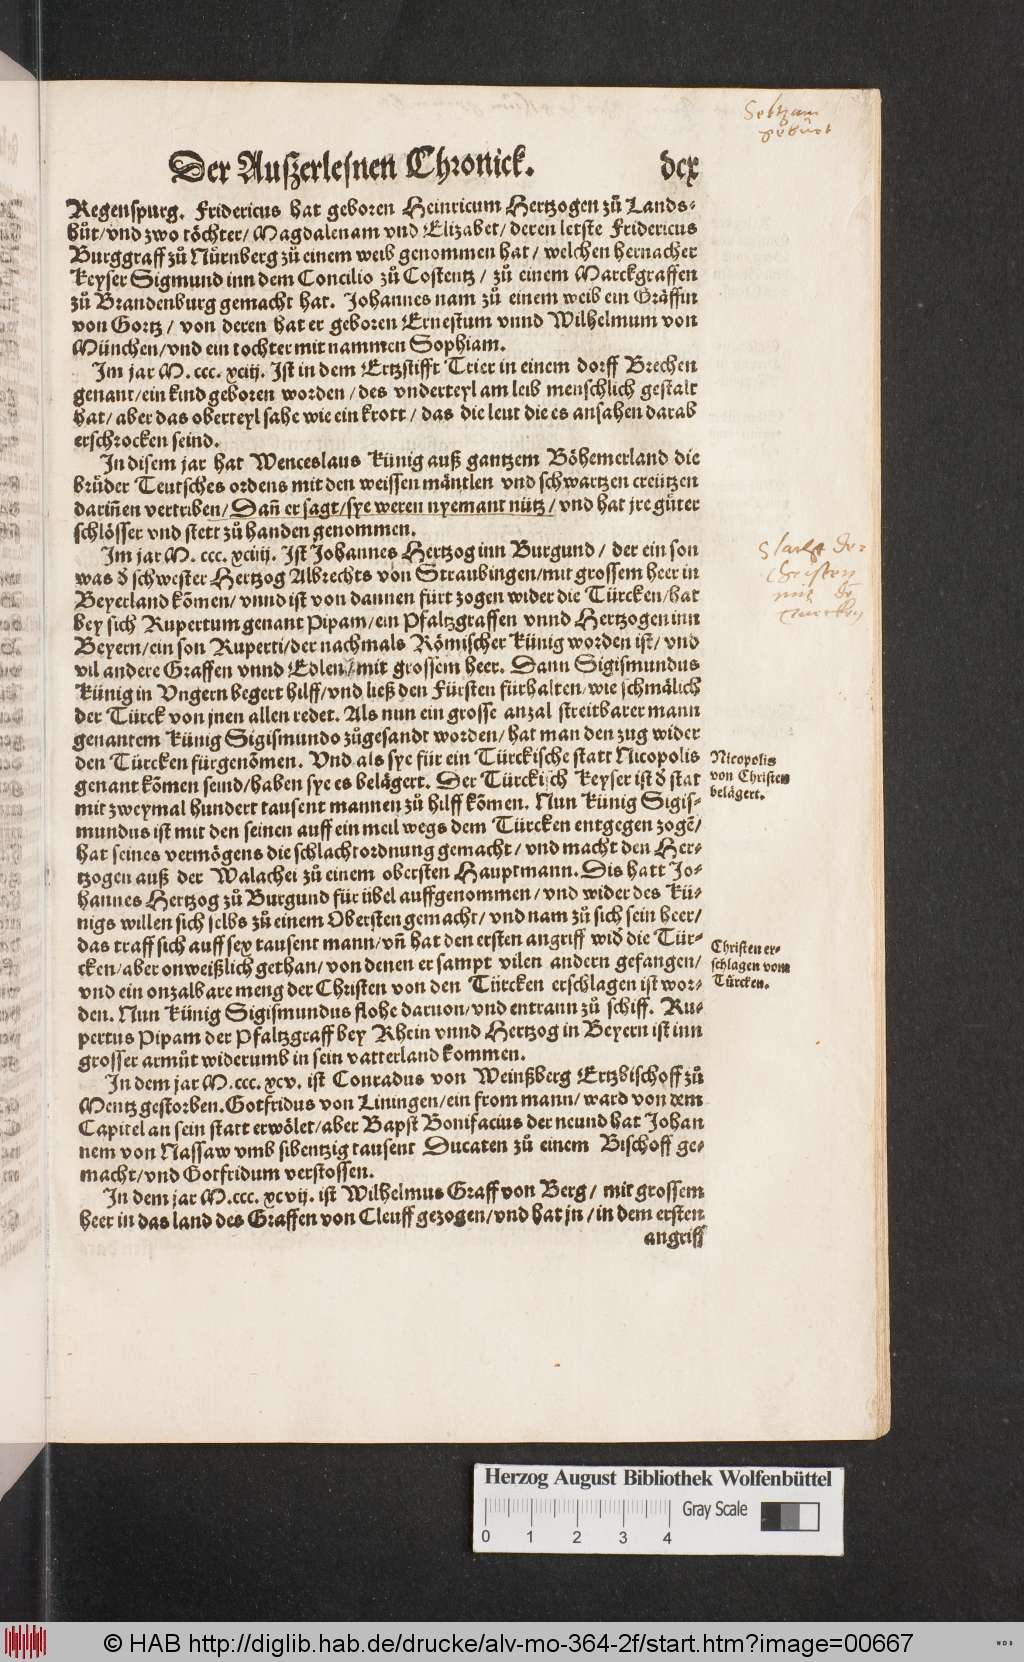 Seltzam
gebürt
Der Auszerlesnen Chronick. dcx
Regenspurg. Fridericus hat geboren Heinricum Hertzogen zů Lands-
hůt/vnd zwo töchter/Magdalenam vnd Elizabet/deren letste Fridericus
Burggraff zů Nürnberg zů einem weib genommen hat/welchen hernacher
Keyser Sigmund inn dem Concilio zů Costentz/zů einem Marckgraffen
zů Brandenburg gemacht hat. Johannes nam zů einem weib ein Gräffin
von Gortz/von deren hat er geboren Ernestum vnnd Wilhelmum von
München/vnd ein tochter mit nammen Sophiam.
Im jar M. ccc. xciij. Ist in dem Ertzstifft Trier in einem dorff Brechen
genant/ein kind geboren worden/des vnderteyl am leib menschlich gestalt
hat/aber das oberteyl sahe wie ein krott/das die leut die es ansahen darab
erschrocken seind.
In disem jar hat Wenceslaus Künig auß gantzem Böhemerland die
brůder Teutsches ordens mit den weissen mäntlen vnd schwartzen creützen
dariñen vertriben/Dañ er sagt/sye weren nyemant nütz/vnd hat jre gůter
schlösser vnd stett zů handen genommen.
Im jar M. ccc. xciiij. Ist Johannes Hertzog inn Burgund/der ein son
was d̕ schwester Hertzog Albrechts von Straubingen/mit grossem heer in
Beyerland kõmen/vnnd ist von dannen fürt zogen wider die Türcken/hat
bey sich Rupertum genant Pipam/ein Pfaltzgraffen vnnd Hertzogen inn
Beyern/ein son Ruperti/der nachmals Römischer Künig worden ist/vnd
vil andere Graffen vnnd Edlen/mit grossem heer. Dann Sigismundus
Künig in Vngern begert hilff/vnd ließ den Fürsten fürhalten/wie schmälich
der Türck von jnen allen redet. Als nun ein grosse anzal streitbarer mann
genantem Künig Sigismundo zůgesandt worden/hat man den zug wider
den Türcken fürgenõmen. Vnd als sye für ein Türckische statt Nicopolis
genant kõmen seind/haben sye es belägert. Der Türckisch Keyser ist d̕ stat
mit zweymal hundert tausent mannen zů hilff kõmen. Nun Künig Sigis-
mundus ist mit den seinen auff ein meil wegs dem Türcken entgegen zogẽ/
hat seines vermögens die schlachtordnung gemacht/vnd macht den Her-
tzogen auß der Walachei zů einem obersten Hauptmann. Dis hatt Jo-
hannes Hertzog zů Burgund für übel auffgenommen/vnd wider des Kü-
nigs willen sich selbs zů einem Obersten gemacht/vnd nam zů sich sein heer/
das traff sich auff sex tausent mann/vñ hat den ersten angriff wid̕ die Tür-
cken/aber onweißlich gethan/von denen er sampt vilen andern gefangen/
vnd ein onzalbare meng der Christen von den Türcken erschlagen ist wor-
den. Nun Künig Sigismundus flohe daruon/vnd entrann zů schiff. Ru-
pertus Pipam der Pfaltzgraff bey Rhein vnnd Hertzog in Beyern ist inn
grosser armůt widerumb in sein vatterland kommen.
In dem jar M.ccc. xcv. ist Conradus von Weinßberg Ertzbischoff zů
Mentz gestorben. Gotfridus von Liningen/ein from mann/ward von dem
Capitel an sein statt erwölet/aber Bapst Bonifacius der neund hat Johan
nem von Nassaw vmb sibentzig tausent Ducaten zů einem Bischoff ge-
macht/vnd Gotfridum verstossen.
In dem jar M.ccc. xcvij. ist Wilhelmus Graff von Berg/mit grossem
heer in das land des Graffen von Cleuff gezogen/vnd hat jn/in dem ersten
angriff
Christen
Nicopolis
von Christen
belägert.
Christen er-
schlagen vom
Türcken.
Herzog August Bibliothek Wolfenbüttel
Gray Scale
0 1 2 3 4
© HAB http://diglib.hab.de/drucke/alv-mo-364-2f/start.htm?image=00667